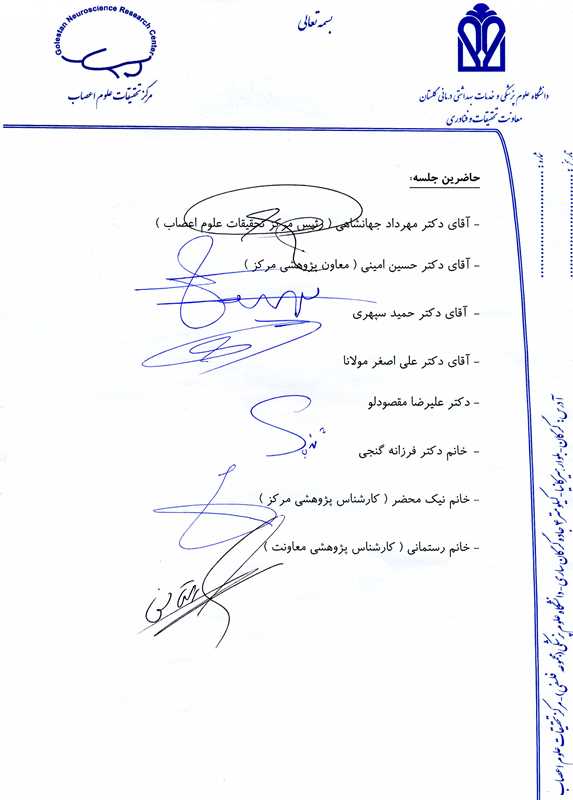 بسمه تعالی
Golestan Neuroscience Research Center
مرکز تحقیقات علوم اعصاب
دانشگاه علوم پزشکی و خدمات بهداشتی درمانی گلستان
معاونت تحقیقات و فناوری
تاریخ:
شماره:
حاضرین جلسه:
- آقای دکتر مهرداد جهانشاهی ( رئیس مرکز تحقیقات علوم اعصاب )
- آقای دکتر حسین امینی ( معاون پژوهشی مرکز )
- آقای دکتر حمید سپهری
- آقای دکتر علی اصغر مولانا
- دکتر علیرضا مقصودلو
- خانم دکتر فرزانه گنجی
- خانم نیک محضر ( کارشناس پژوهشی مرکز )
- خانم رستمانی ( کارشناس پژوهشی معاونت )
آدرس: گرگان - جاده گرگان ساری - دانشگاه علوم پزشکی - مرکز تحقیقات علوم اعصاب